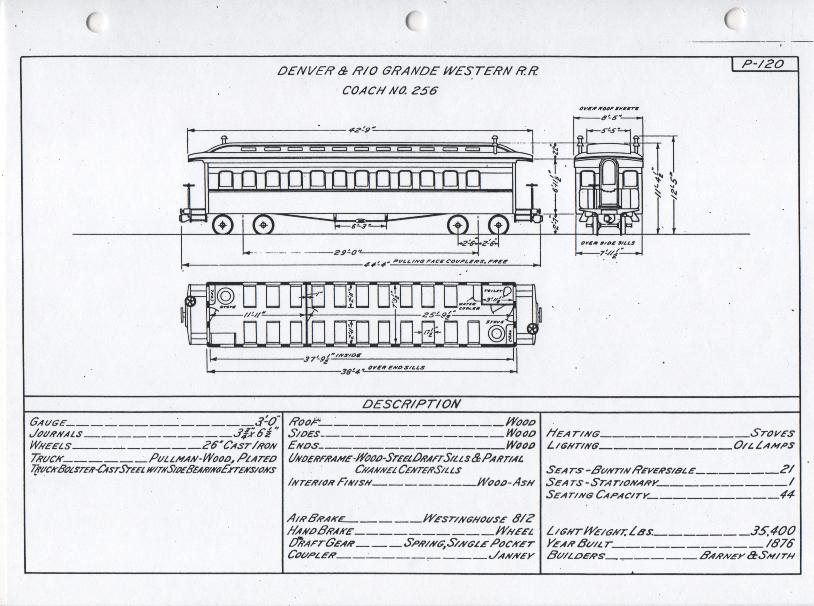 P-120
DENVER & RIO GRANDE WESTERN R.R.
COACH NO. 256
OVER ROOF SHEETS
8'-5"
5'-5"
42'-9"
22"
6'-11½"
2'-7"
11'-4½"
12'-5"
6'-3"
2'-6" 2'-6"
29'-0"
44'-4" PULLING FACE COUPLERS, FREE
OVER SIDE SILLS
7'-11½"
COAL
STOVE
TOILET
WATER
COOLER
11'-11"
25'-9½"
STOVE
COAL
37'-9½" INSIDE
38'-4" OVER END SILLS
DESCRIPTION
GAUGE 3'-0"
JOURNALS 3¾"x6½"
WHEELS 26" CAST IRON
TRUCK PULLMAN-WOOD, PLATED
TRUCK BOLSTER-CAST STEEL WITH SIDE BEARING EXTENSIONS
ROOF WOOD
SIDES WOOD
ENDS WOOD
UNDERFRAME-WOOD-STEEL DRAFT SILLS & PARTIAL
CHANNEL CENTER SILLS
INTERIOR FINISH WOOD-ASH
AIR BRAKE WESTINGHOUSE 812
HAND BRAKE WHEEL
DRAFT GEAR SPRING, SINGLE POCKET
COUPLER JANNEY
HEATING STOVES
LIGHTING OIL LAMPS
SEATS-BUNTIN REVERSIBLE 21
SEATS-STATIONARY 1
SEATING CAPACITY 44
LIGHT WEIGHT, LBS. 35,400
YEAR BUILT 1876
BUILDERS BARNEY & SMITH